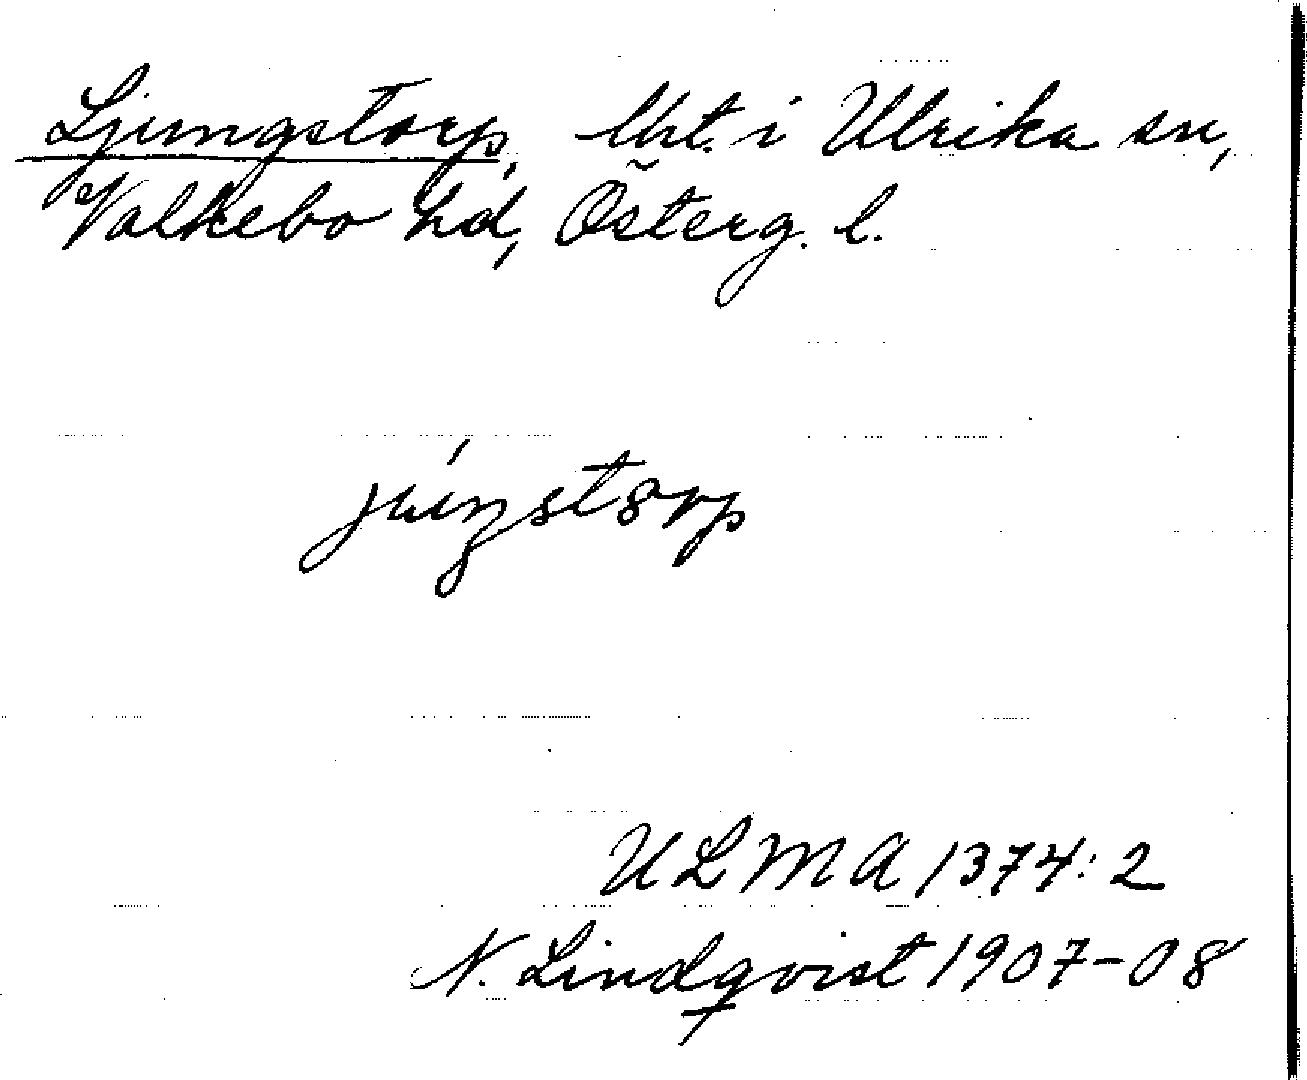 Ljungstorp, Utt. i Ulrika sn,
Valkebo hd, Österg. l.
júŋstorp
ULMA 1374:2
N. Lindqvist 1907-08